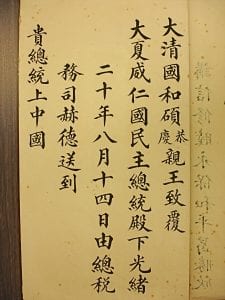 大清國和碩恭慶親王致覆
大夏威仁國民主總統殿下光緒
二十年八月十四日由總稅
務司赫德送到
貴總統上中國